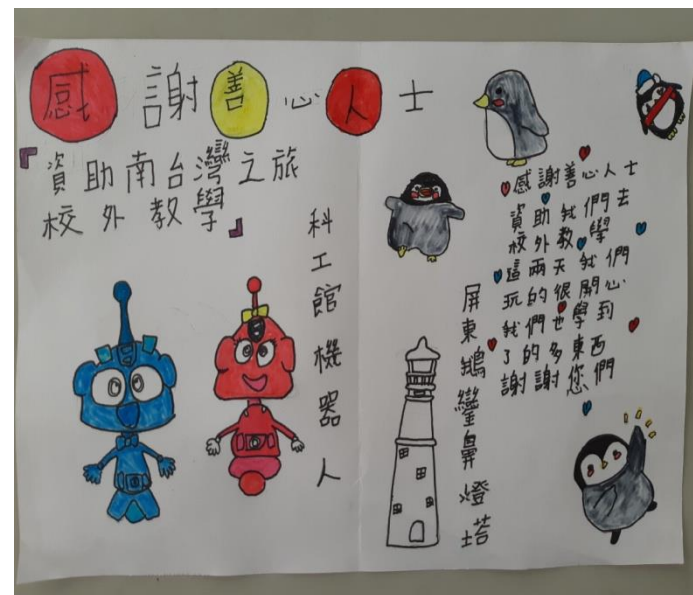 感謝善心人士
『資助南台灣之旅
校外教學』
科工館機器人
屏東鵝鑾鼻燈塔
感謝善心人士
資助我們去
校外教學
這兩天我們
玩的很開心
我們也學到
了的多東西
謝謝您們